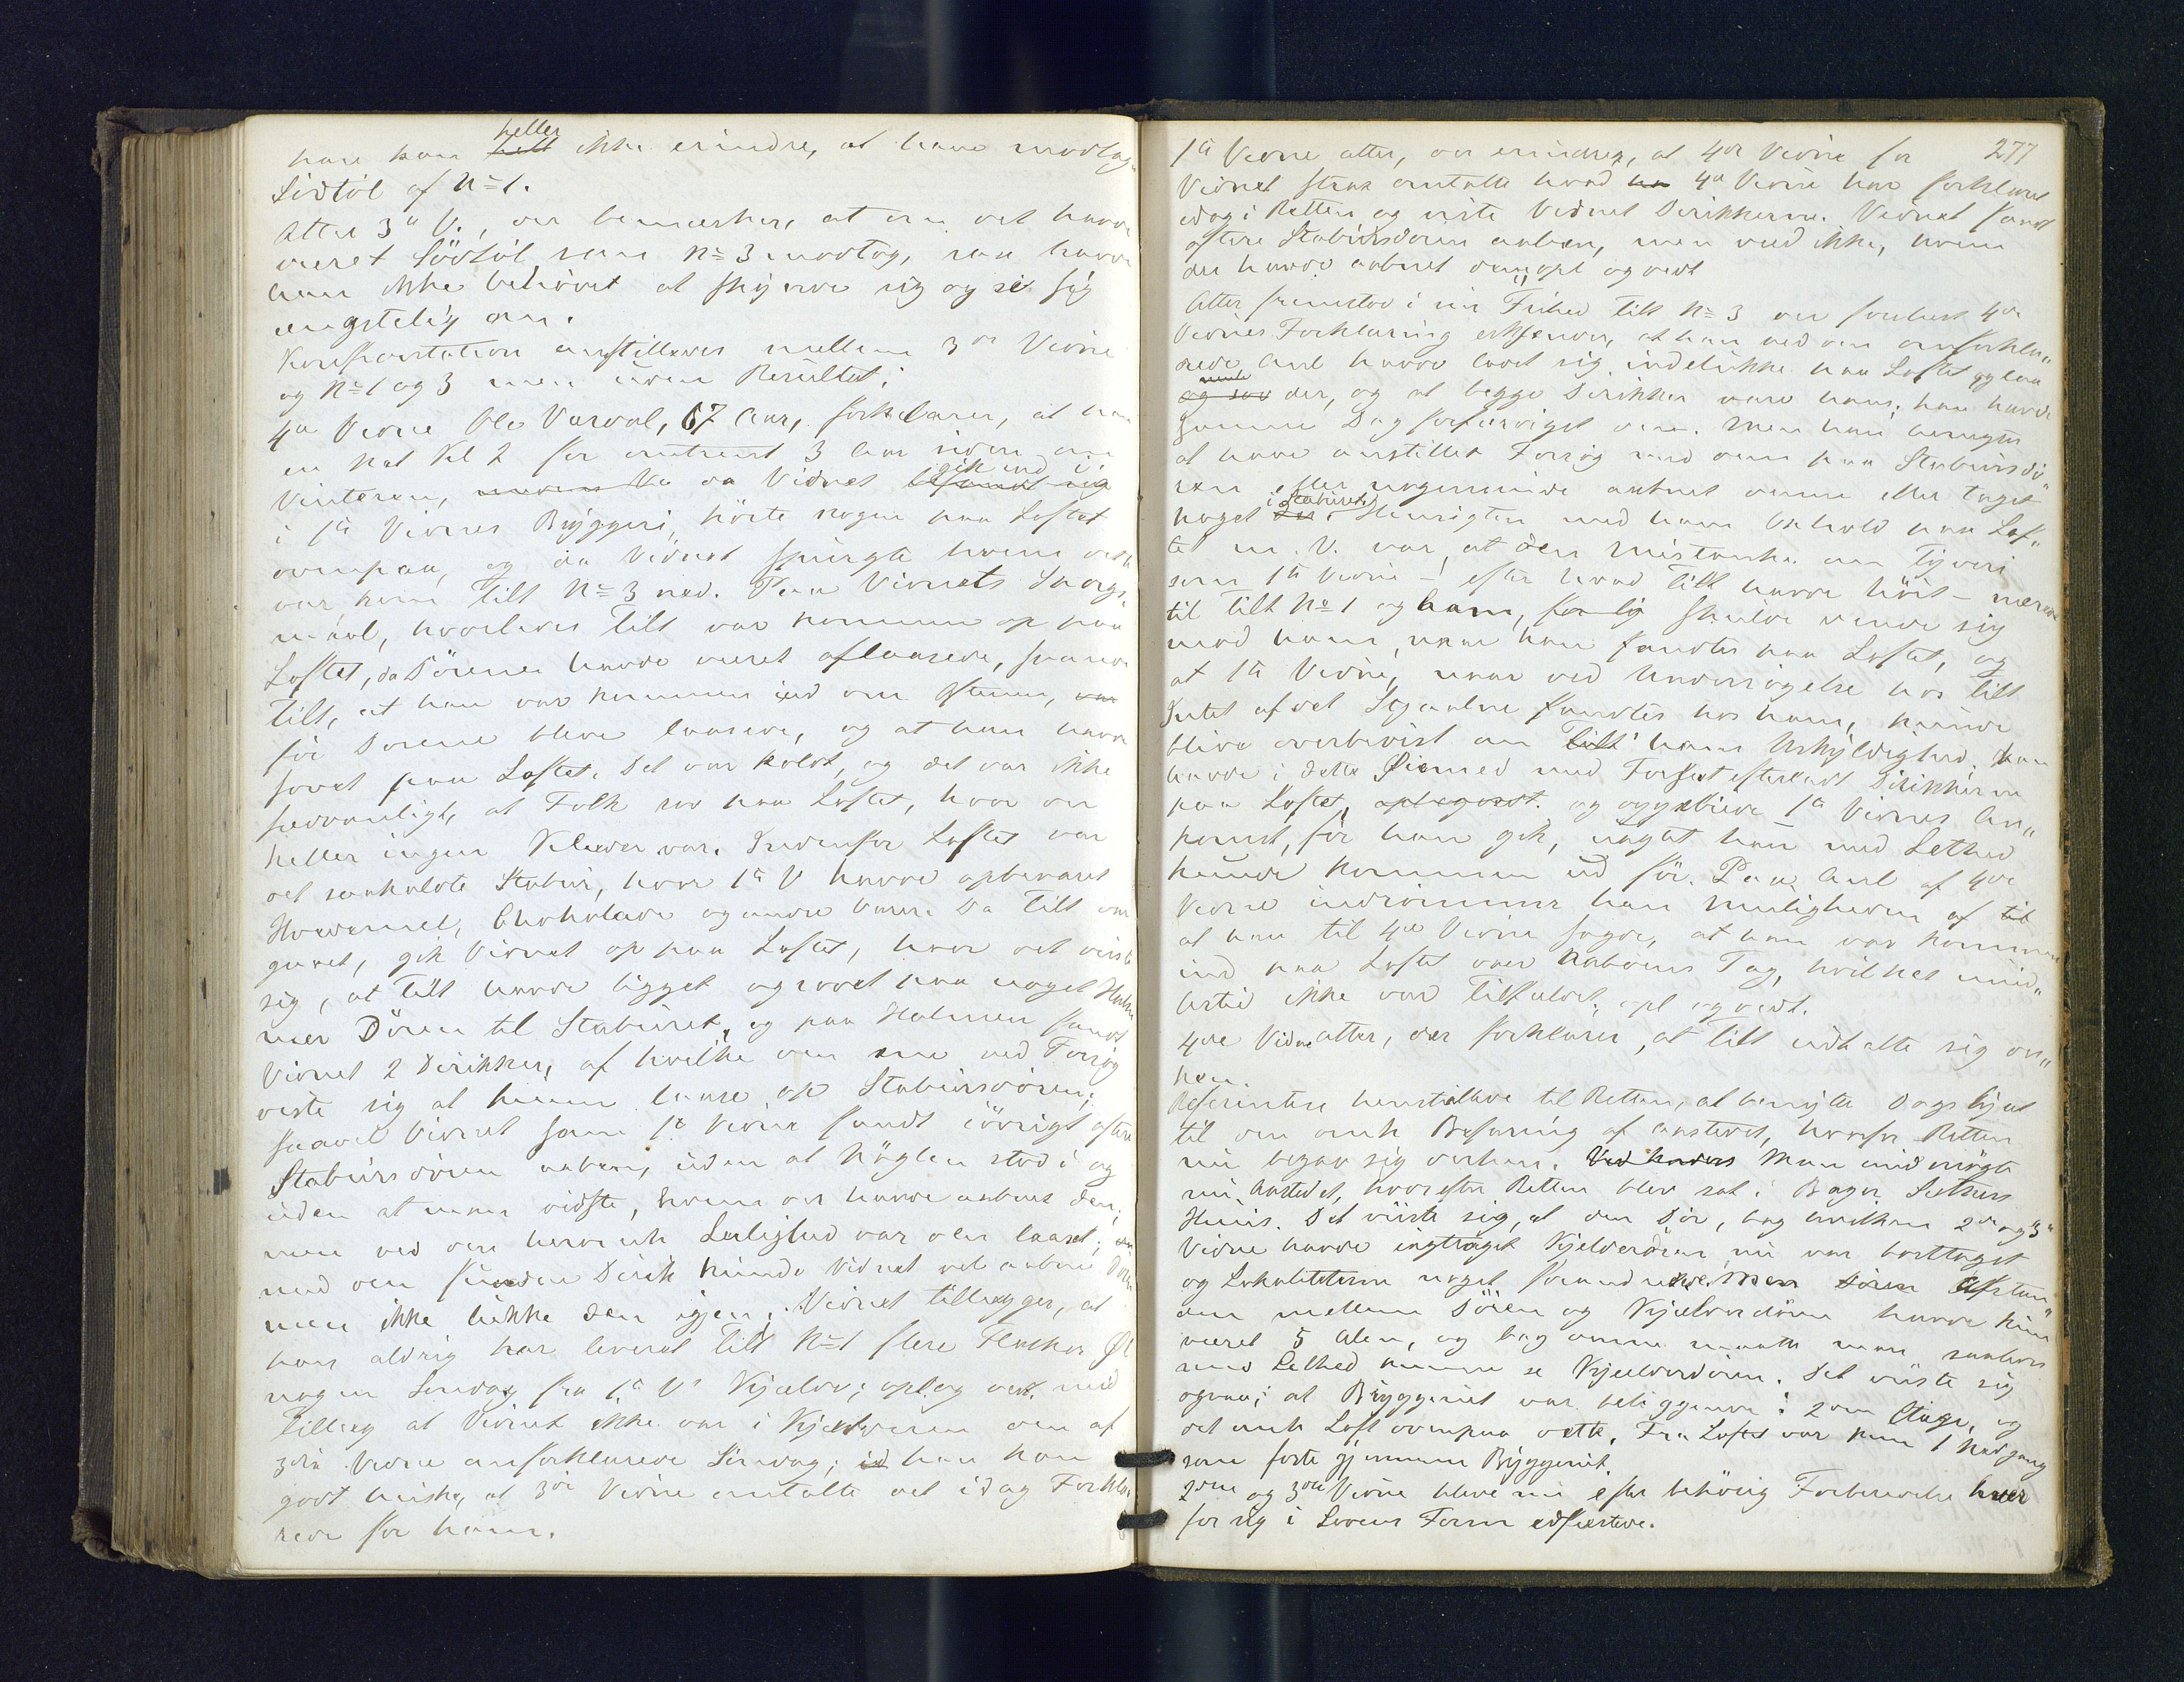 heller
han kan helt ikke erindre, at have modtag
Sødtøl af No 1.
Atter 3de V., der bemærker, at om det havde
været Södtöl som No 3 modtog, saa havde
han ikke behövet at skynde sig og se sig
ængstelig om.
Konfrontation anstilledes mellem 3de Vidne
og No 1 og 3 men uden Resultat;
4de Vidne Ole Varvol, 67 Aar, forklarer, at han
en Nat Kl 2 for omtrent 3 Aar siden om
gik ind i
Vinteren, da Vidnet befandt sig
i 1ste Vidnes Bryggeri, hörte nogen paa Loftet
ovenpaa, og da Vidnet spurgte hvem det
var, kom Tilt No 3 ned. Paa Vidnets Spörgs„
maal, hvorledes Tilt var kommen op paa
Loftet, da Dörene havde været aflaasede, svarede
Tilt, at han var kommen ind om Aftenen,
för Dörene bleve laasede, og at han havde
sovet paa Loftet. Det var koldt, og det var ikke
sædvanligt, at Folk sov paa Loftet, hvor der
heller ingen Klæder var. Indenfor Loftet var
det saakaldte Stabur, hvor 1ste V havde opbevaret
Hvedemel, Chokolade og andre Varer. Da Tilt var
gaaet, gik Vidnet op paa Loftet, hvor det viste
sig, at Tilt havde ligget og sovet paa noget Halm
nær Dören til Staburet, og paa Halmen fandt
Vidnet 2 Dirikker, af hvilke den ene ved Forsög
viste sig at kunne laase op Stabursdören;
saavel Vidnet som 1ste Vidne fandt iövrigt oftere
Stabursdören aaben, uden at Nöglen stod i og
uden at man vidste, hvem der havde aabnet den;
men ved den heromh Leilighed var den laaset;
med den fundne Dirik kunde Vidnet vel aabne Dören
men ikke lukke den igjen; Vidnet tillægger, at
han aldrig har leveret Tilt No 1 flere Flasker Öl
nogen Søndag fra 1ste Vs Kjælder; opl og vedt. med
Tillæg at Vidnet ikke var i Kjælderen den af
3die Vidne omforklarede Söndag; han kan
godt huske, at 3die Vidne omtalte det idag Forkla
rede for ham.
277
1ste Vidne atter, der erindrer, at 4de Vidne for
Vidnet strax omtalte hvad 4de Vidne har forklaret
idag i Retten og viste Vidnet Dirikkerne. Vidnet fandt
oftere Stabursdören aaben, men ved ikke, hvem
der havde aabnet den; opl og vedt
Atter fremstod i sin Frihed Tilt No 3 der foreholdt 4de
Vidnes Forklaring erkjender, at han ved den omforkla„
rede Anl havde ladet sig indelukke paa Loftet og laa
og sov der, og at begge Dirikker vare hans; han havde
samme Dag forfærdiget dem. Men han benegter
at have anstillet Forsög med dem paa Stabursdö„
ren eller nogensinde aabnet denne eller taget
i Staburet
noget der. Hensigten med hans Ophold paa Lof„
tet m. V. var, at den Mistanke om Tyveri
som 1ste Vidne – efter hvad Tilt havde hört – nærede
til Tilt No 1 og ham, skulde vende sig
mod ham, naar han fandtes paa Loftet, og
at 1ste Vidne, naar ved Undersögelse hos Tilt
Intet af det Stjaalne fandtes hos ham, kunde
blive overbevist om Tilt hans Uskyldighed. Han
havde i dette Øiemed med Forsæt efterladt Dirikkerne
paa Loftet, og oppebiede 1ste Vidnes An„
komst, för han gik, uagtet han med Lethed
kunde kommen ud för. Paa Anl af 4de
Vidne indrömmer han Muligheden af
at han til 4de Vidne sagde, at han var kommen
ind paa Loftet over Naboens Tag, hvilket imid„
lertid ikke var Tilfældet; opl og vedt.
4de Vidne atter, der forklarer, at Tilt udtalte sig der„
hen.
Referenten henstillede til Retten, at benytte Dagslyset
til den omh Befaring af Aastedet, hvorfor Retten
nu begav sig derhen. Man undersögte
nu Aastedet, hvorefter Retten blev sat i Bager
Huus. Det viiste sig, at den Dör, bag hvilken 2de og 3de
Vidne havde iagttaget Kjelderdören nu var borttaget
og Lokaliteterne noget forandrede. Men Dören Afstan„
den mellem Dören og Kjælderdören havde kun
været 5 Alen, og bag denne maatte man saaledes
med Lethed kunne se Kjælderdören. Det viiste sig
ogsaa, at Bryggeriet var beliggende i 2den Etage, og
det omh Loft ovenpaa dette. Fra Loftet var kun 1 Nedgang
som förte gjennem Bryggeriet.
2den og 3die Vidne bleve nu efter behörig Forberedelse hver
for sig i Lovens Form edfæstede.